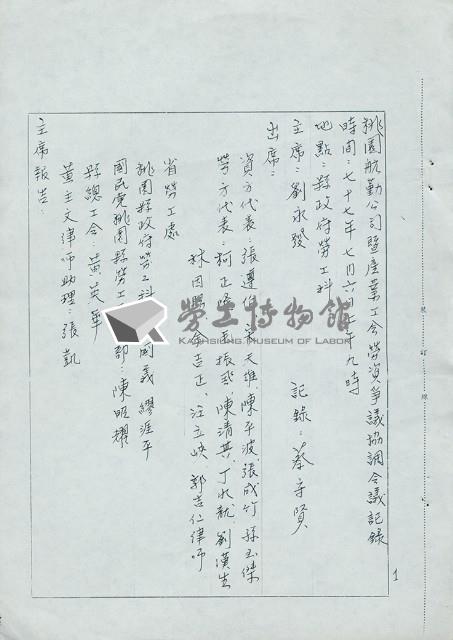 桃園航勤公司暨產業工会勞資爭議協調会議記錄
時间：七十七年七月六日上午九時
地點：縣政府勞工科
主席：劉永發
記錄：蔡守賢
出席：
資方代表：張遵 天雄、陳平波 張成竹 孫玉傑
勞方代表：柯正隆 振 陳清其、丁水龍、劉漢生
林国 吉正、汪立峽、郭吉仁律师
省勞工處
桃園縣政府勞工科 國義 繆涯平
國民党桃園縣勞工 部：陳旺耀
縣總工会 黃英華
董主文律师助理：張凱
主席報告：
1
裝
訂
線
勞工博物館
KAOHSIUNG MUSEUM OF LABOR